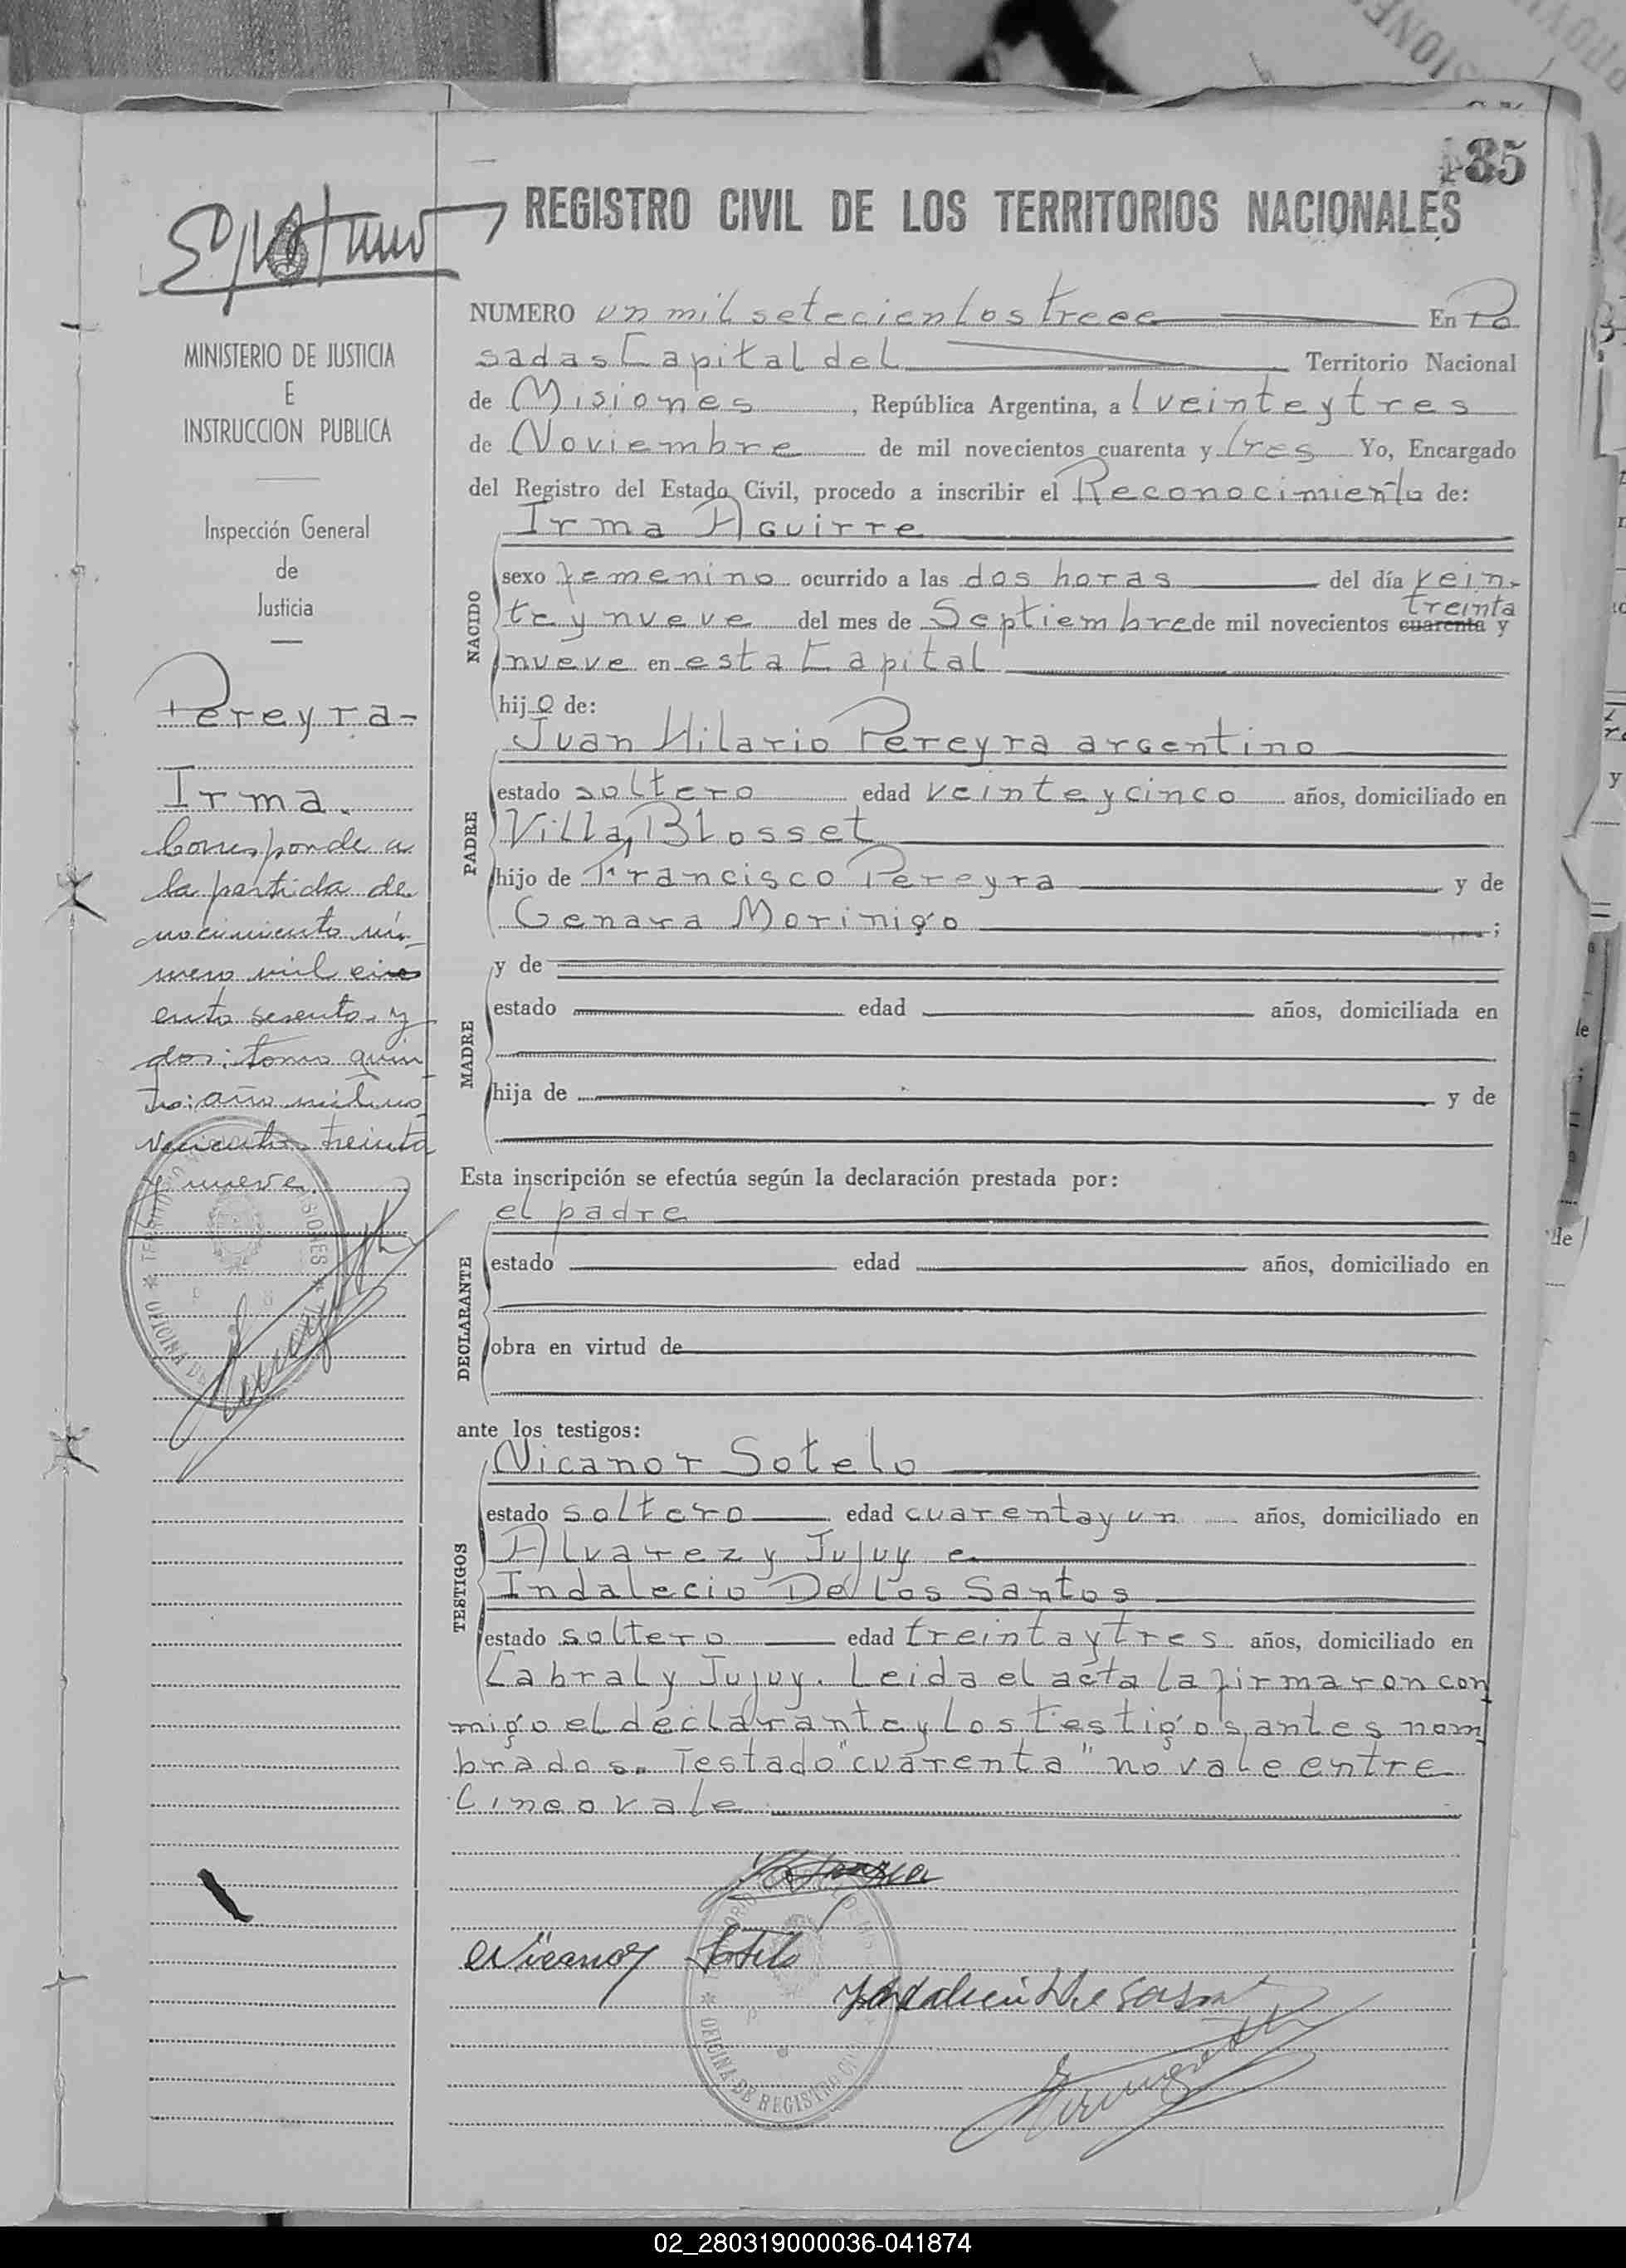 85
REGISTRO CIVIL DE LOS TERRITORIOS NACIONALES
MINISTERIO DE JUSTICIA
E
INSTRUCCION PUBLICA
Inspección General
de
Justicia
Pereyra-
Irma.
Corresponde a
la partida de
nacimiento nú-
mero mil cin
ento sesenta y
dos: tomo quin
to: año mil no
vecientos treinta
y nueve.
NUMERO un mil setecientos trece En Po
sadas Capital del Territorio Nacional
de Misiones, República Argentina, a l veinte y tres
de Noviembre de mil novecientos cuarenta y tres Yo, Encargado
del Registro del Estado Civil, procedo a inscribir el Reconocimiento de:
Irma Aguirre
NACIDO
sexo femenino ocurrido a las dos horas del día vein-
treinta
te y nueve del mes de Septiembre de mil novecientos cuarenta y
nueve en esta Capital
hija de:
PADRE
Juan Hilario Pereyra argentino
estado soltero edad veinte y cinco años, domiciliado en
Villa Blosset
hijo de Francisco Pereyra y de
Genara Morinigo ;
MADRE
y de
estado edad años, domiciliada en
hija de y de
Esta inscripción se efectúa según la declaración prestada por:
DECLARANTE
el padre
estado edad años, domiciliado en
obra en virtud de
ante los testigos:
TESTIGOS
Nicanor Sotelo
estado soltero edad cuarenta y un años, domiciliado en
Alvarez y Jujuy e
Indalecio De los Santos
estado soltero edad treinta y tres años, domiciliado en
Cabral y Jujuy. Leida el acta la firmaron con
migo el declarante y los testigos antes nom
brados. Testado "cuarenta" no vale entre
Cineo vale
Nicanor Sotelo
OFICINA DE REGISTRO
02_280319000036-041874